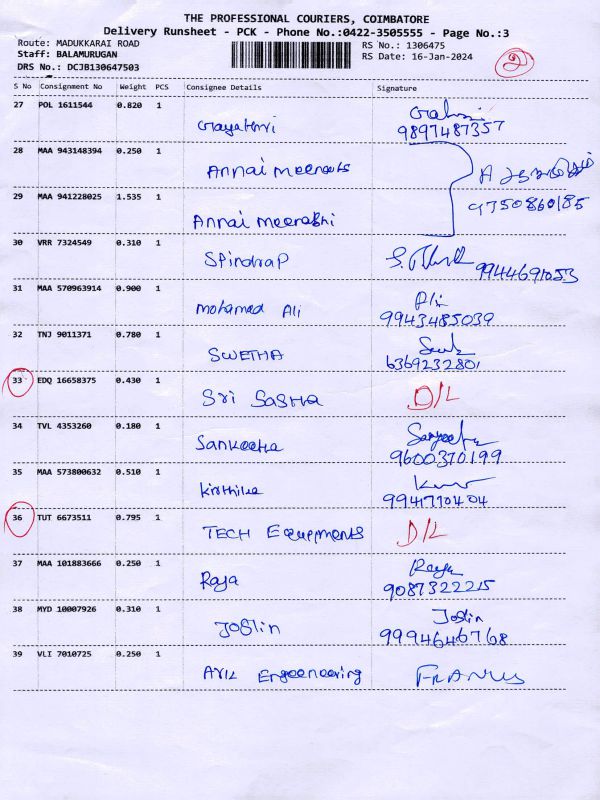 THE PROFESSIONAL COURIERS, COIMBATORE
Delivery Runsheet - PCK - Phone No.:0422-3505555 - Page No.:3
Route: MADUKKARAI ROAD RS No.: 1306475
Staff: BALAMURUGAN RS Date: 16-Jan-2024
DRS No.: DCJB130647503
2
S No Consignment No Weight PCS Consignee Details Signature
27 POL 1611544 0.820 1 Gayathri
9897487357
28 MAA 943148394 0.250 1 Annai
29 MAA 941228025 1.535 1 Annai Meenakshi
9750860185
30 VRR 7324549 0.310 1 Spindrap
9944691053
31 MAA 570963914 0.900 1 Mohamed Ali Ali
9943485039
32 TNJ 9011371 0.780 1 SWETHA
6369232801
33 EDQ 16658375 0.430 1 Sri Sasha D/L
34 TVL 4353260 0.180 1 Sankeetha
9600370199
35 MAA 573800632 0.510 1
9941770404
36 TUT 6673511 0.795 1 TECH Equipments D/L
37 MAA 101883666 0.250 1 Raja Raja
9087322215
38 MYD 10007926 0.310 1 Joslin Joslin
9994646768
39 VLI 7010725 0.250 1 Engeeneering